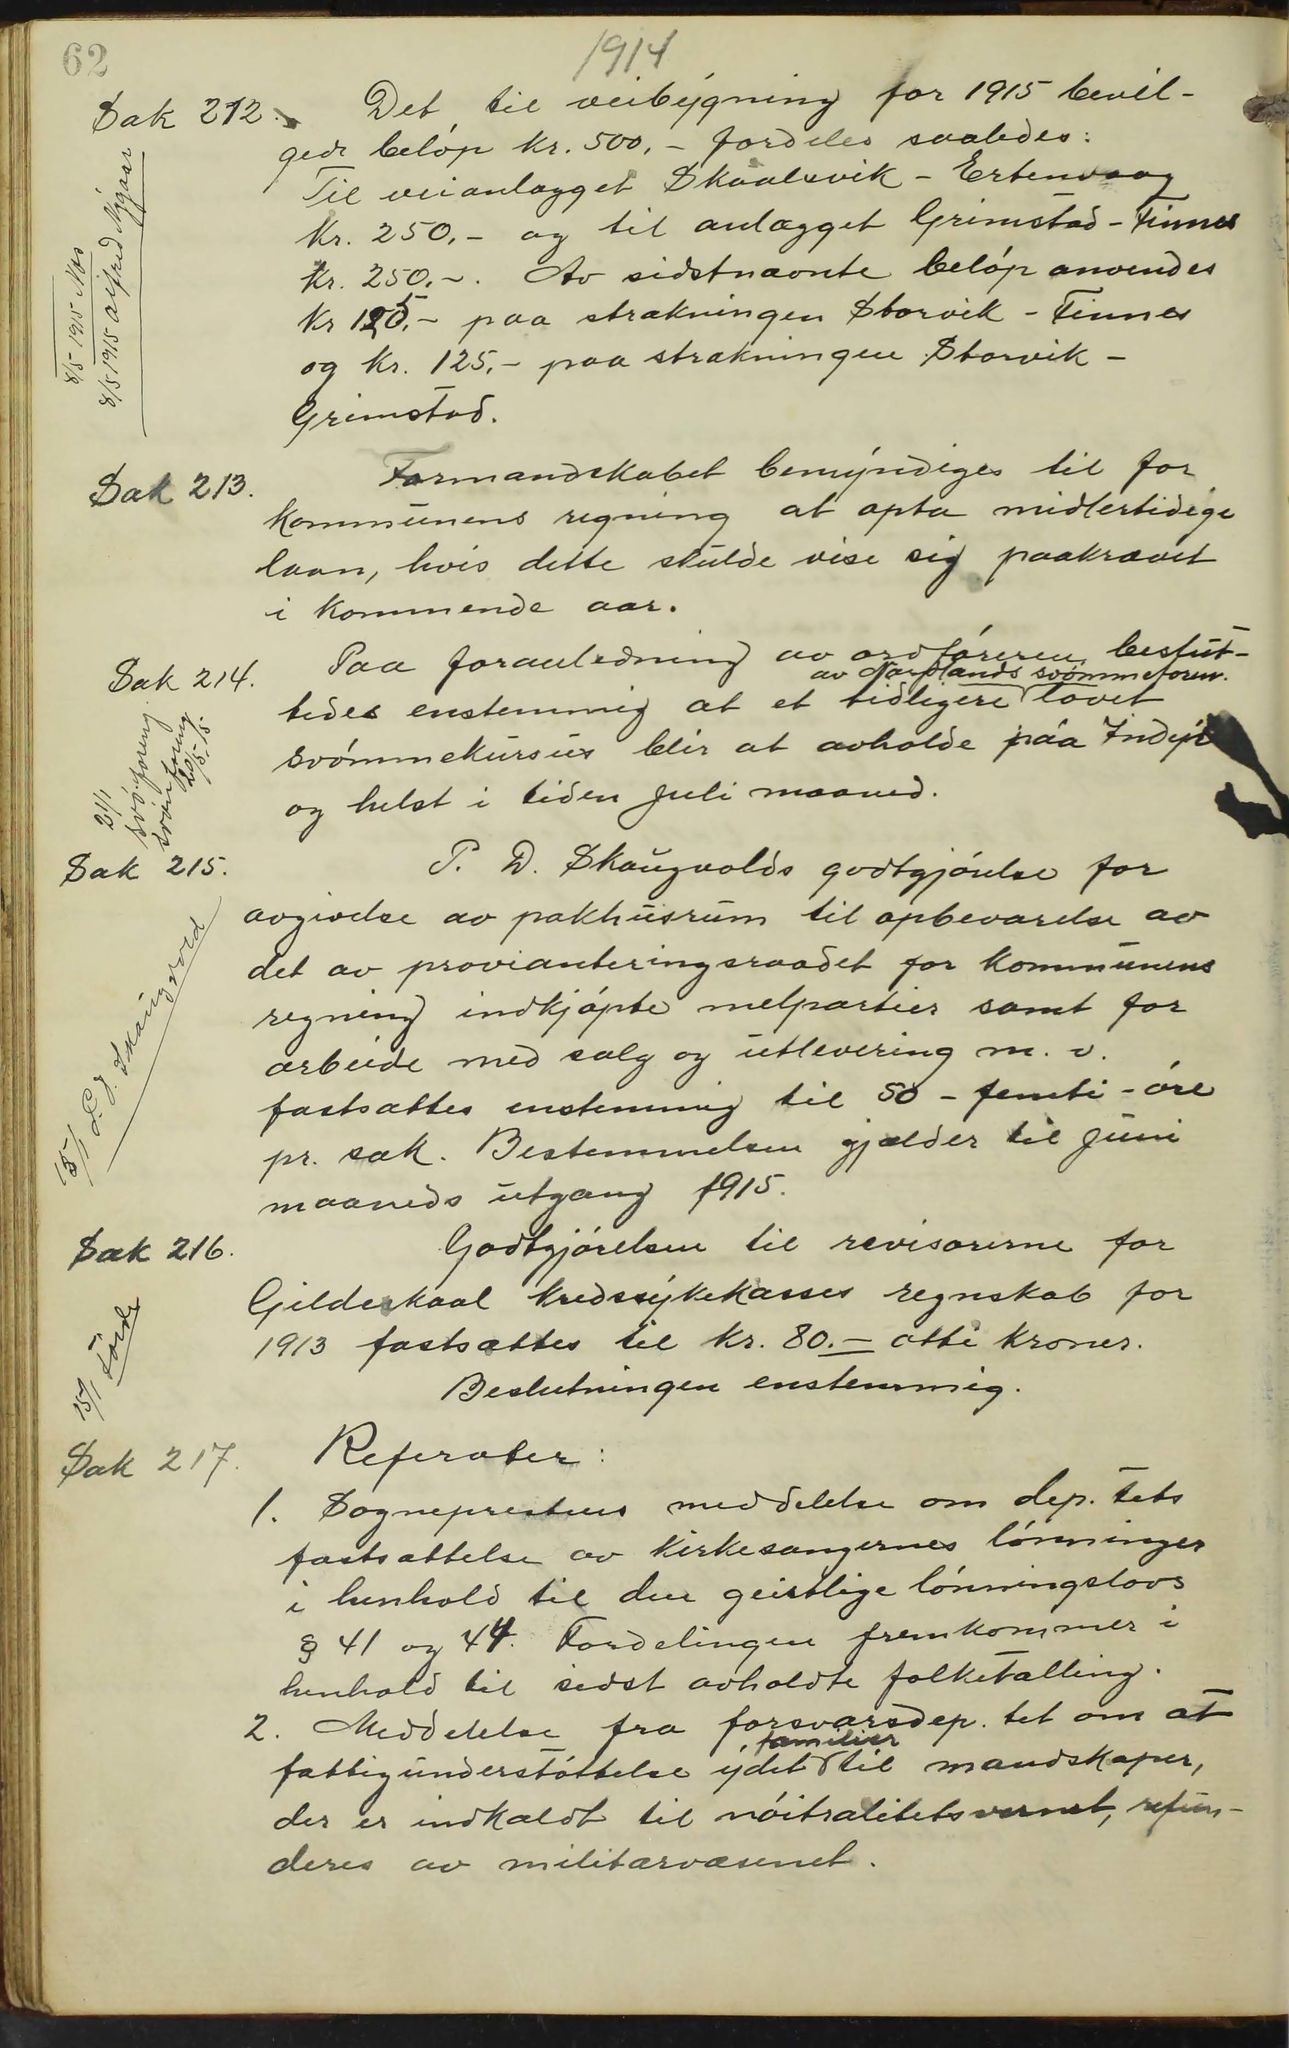 62
1914
Sak 212. Det til veibygning for 1915 bevil-
gede beløp kr. 500,- fordeles saaledes:
Til veianlægget Skaalsvik - Ertenvaag
kr. 250,- og til anlægget Grimstad - Finnes
kr. 250,-. Av sidstnævnte beløp anvendes
kr 125,- paa strækningen Storvik - Finnes
og kr. 125,- paa strækningen Storvik -
Grimstad.
8/5 1915 Næs
8/5 1915 Alfred Nygaar
Sak 213. Formandskabet bemyndiges til for
kommunens regning at opta midlertidige
laan, hvis dette skulde vise sig paakrævet
i kommende aar.
Sak 214. Paa foranledning av ordføreren beslut-
av Nordlands svømmeforen.
tedes enstemmig at et tidligere lovet
svømmekursus blir at avholde paa Indyr
og helst i tiden Juli maaned.
21/1
svø. forening
svømforening
20/5. 15.
Sak 215. P. D. Skaugvolds godtgjørelse for
avgivelse av pakhusrum til opbevarelse av
det av provianteringsraadet for kommunens
regning indkjøpte melpartier samt for
arbeide med salg og utlevering m. v.
fastsættes enstemmig til 50 - femti - øre
pr. sæk. Bestemmelsen gjælder til Juni
maaneds utgang 1915.
15/1 P. D. Skaugvold
Sak 216. Godtgjørelsen til revisorerne for
Gildeskaal kredssykekasses regnskab for
1913 fastsættes til kr. 80.- otti kroner.
Beslutningen enstemmig.
15/1
Sak 217. Referater:
1. Sogneprestens meddelelse om dep. tets
fastsættelse av kirkesangernes lønninger
i henhold til den geistlige lønningslovs
§ 41 og 44. Fordelingen fremkommer i
henhold til sidst avholdte folketælling.
2. Meddelelse fra forsvarsdep. tet om at
familier
fattigunderstøttelse ydet til mandskaper,
der er indkaldt til nøitralitetsvernet, refun-
deres av militærvæsenet.